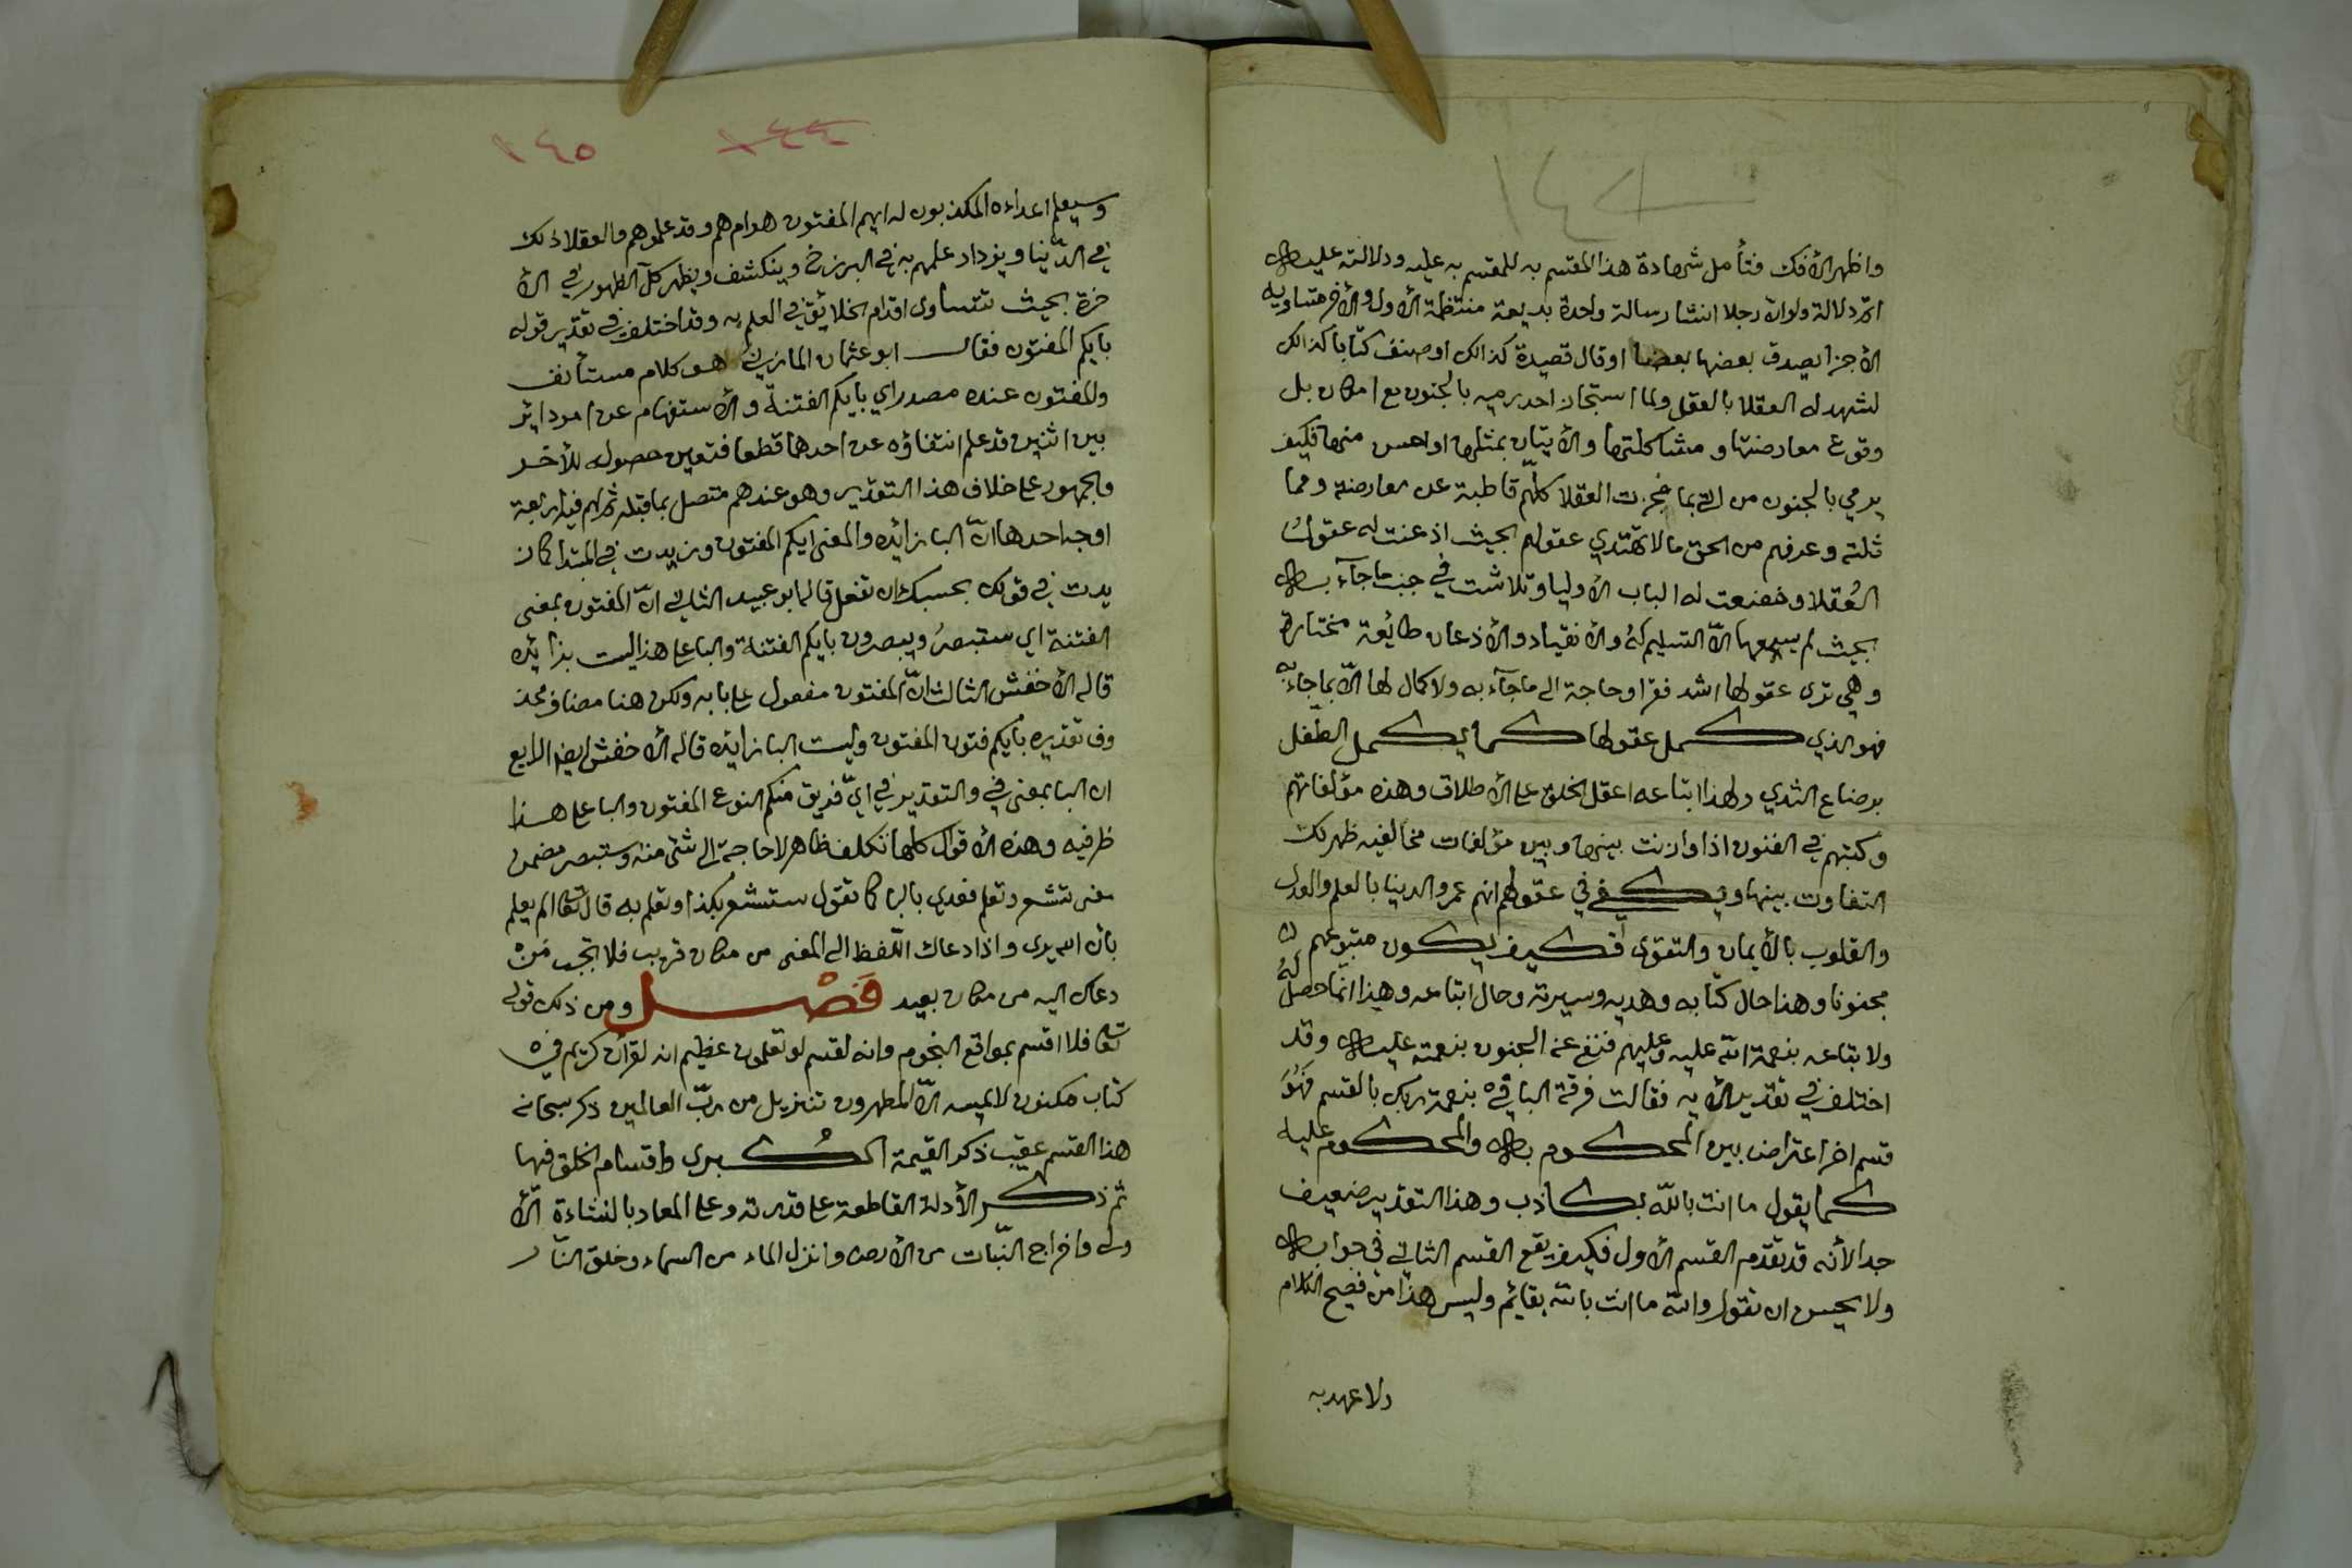 ١٤٤
واظهر الأفك فتأمل شهادة هذا المقسم به للمقسم به عليه ودلالته عليه
اتم دلالة ولو ان رجلا انشا رسالة واحدة بديعة منتظمة الأول والأخر متساويه
الأجزا يصدق بعضها بعضا او قال قصيدة كذالك او صنف كتابا كذالك
لشهد له العقلا بالعقل ولما استجاز احد رميه بالجنون مع امكان بل
وقوع معارضتها ومشاكلتها والأتيان بمثلها او احسن منها فكيف
يرمي بالجنون من اتى بما عجزت العقلا كلهم قاطبة عن معارضته ومما
ثلته وعرفهم من الحق مالا تهتدي عقولهم بحيث اذعنت له عقول
العُقلا وخضعت له الباب الأوليا وتلاشت في جنب ماجآء به
بحيث لم يسعها الاّ التسليم لهُ والأنقياد والأذعان طائعة مختارة
وهي ترى عقولها اشد فقرا وحاجة الى ماجآء به ولا كمال لها الاّ بما جآء به
فهو الذي كمل عقولها كما يكمل الطفل
برضاع الثدي ولهذا اتباعه اعقل الخلق على الأطلاق وهذه مؤلفاتهم
وكتبهم في الفنون اذا وازنت بينها وبين مؤلفات مخالفيه ظهر لك
التفاوت بينها ويكفي في عقولهم انهم عمروا لدنيا بالعلم والعدل
والقلوب بالأيمان والتقوى فكيف يكون متبوعهم
مجنونا وهذا حال كتابه وهديه وسيرته وحال اتباعه وهذا انما حصل لهُ
ولا تباعه بنعمة الله عليه وعليهم فنفى عنه الجنون بنعمته عليه وقد
اختلف في تقدير الأيه فقالت فرقة البا في بنعمة ربك بالقسم فهُوَ
قسم اخر اعتراض بين المحكوم به والمحكوم عليه
كما يقول ما انت بالله بكاذب وهذا التقدير ضعيف
جدا لأنه قد تقدم القسم الأول فكيف يقع القسم الثاني في جوابه
ولا يحسن ان تقول والله ما انت بالله بقائم وليس هذا من فصيح الكلام
ولا عهد به
١٤٤ ١٤٥
وسيعلم اعداءه المكذبون له ايهم المفتون هو ام هم وقد علموهم والعقلا ذلك
في الدّنيا ويزداد علمهم به في البرزخ وينكشف ويظهر كلّ الظهور في الأ
خرة بحيث تتساوى اقدام الخلائق في العلم به وقد اختلف في تقدير قوله
بايكم المفتون فقال ابو عثمان المازني هو كلام مستأنف
والمفتون عنده مصدر اي بايكم الفتنة والأستفهام عن امر داير
بين اثنين قد علم انتفاؤه عن احدهما قطعا فتعين حصوله للأخر
والجمهور على خلاف هذا التقدير وهو عندهم متصل بما قبله ثم لهم فيه اربعة
اوجه احدها انّ البا زائده والمعنى ايكم المفتون وزيدت في المبتدا كما ز
يدت في قولك بحسبك ان تفعل قاله ابو عبيد الثاني انّ المفتون بمعنى
الفتنة اي ستبصرُ ويبصرون بايكم الفتنة والبا على هذا ليست بزايده
قاله الأخفش الثالث انّ المفتون مفعول على بابه ولكن هنا مضاف محذ
وف تقديره بأيكم فتون المفتون وليست البا زايده قاله الأخفش ايضا الرابع
ان البا بمعنى في والتقدير في ايّ فريق منكم النوع المفتون والبا على هذا
ظرفيه وهذه الأقوال كلها تكلف ظاهر لا حاجة الى شئ منه وستبصر مضمن
معنى تشعر وتعلم فعدي بالبا كما تقول ستشعر بكذا وتعلم به قال تعا الم يعلم
بأن الله يرى واذا دعاك اللّفظ الى المعنى من مكان قريب فلا تجب مَنْ
دعاك اليه من مكان بعيد فَصْل ومن ذلك قوله
تعا فلا اقسم بمواقع النجوم وانه لقسم لو تعلمون عظيم انه لقرآن كريم في
كتاب مكنون لا يمسه الاّ المطهرون تنزيل من ربّ العالمين ذكر سبحانه
هذا القسم عقيب ذكر القيمة الكُبرى واقسام الخلق فيها
ثم ذكر الأدلة القاطعة على قدرته وعلى المعاد بالنشاءة الأ
ولى واخراج النّبات من الأرض وانزل الماء من السماء وخلق النّار